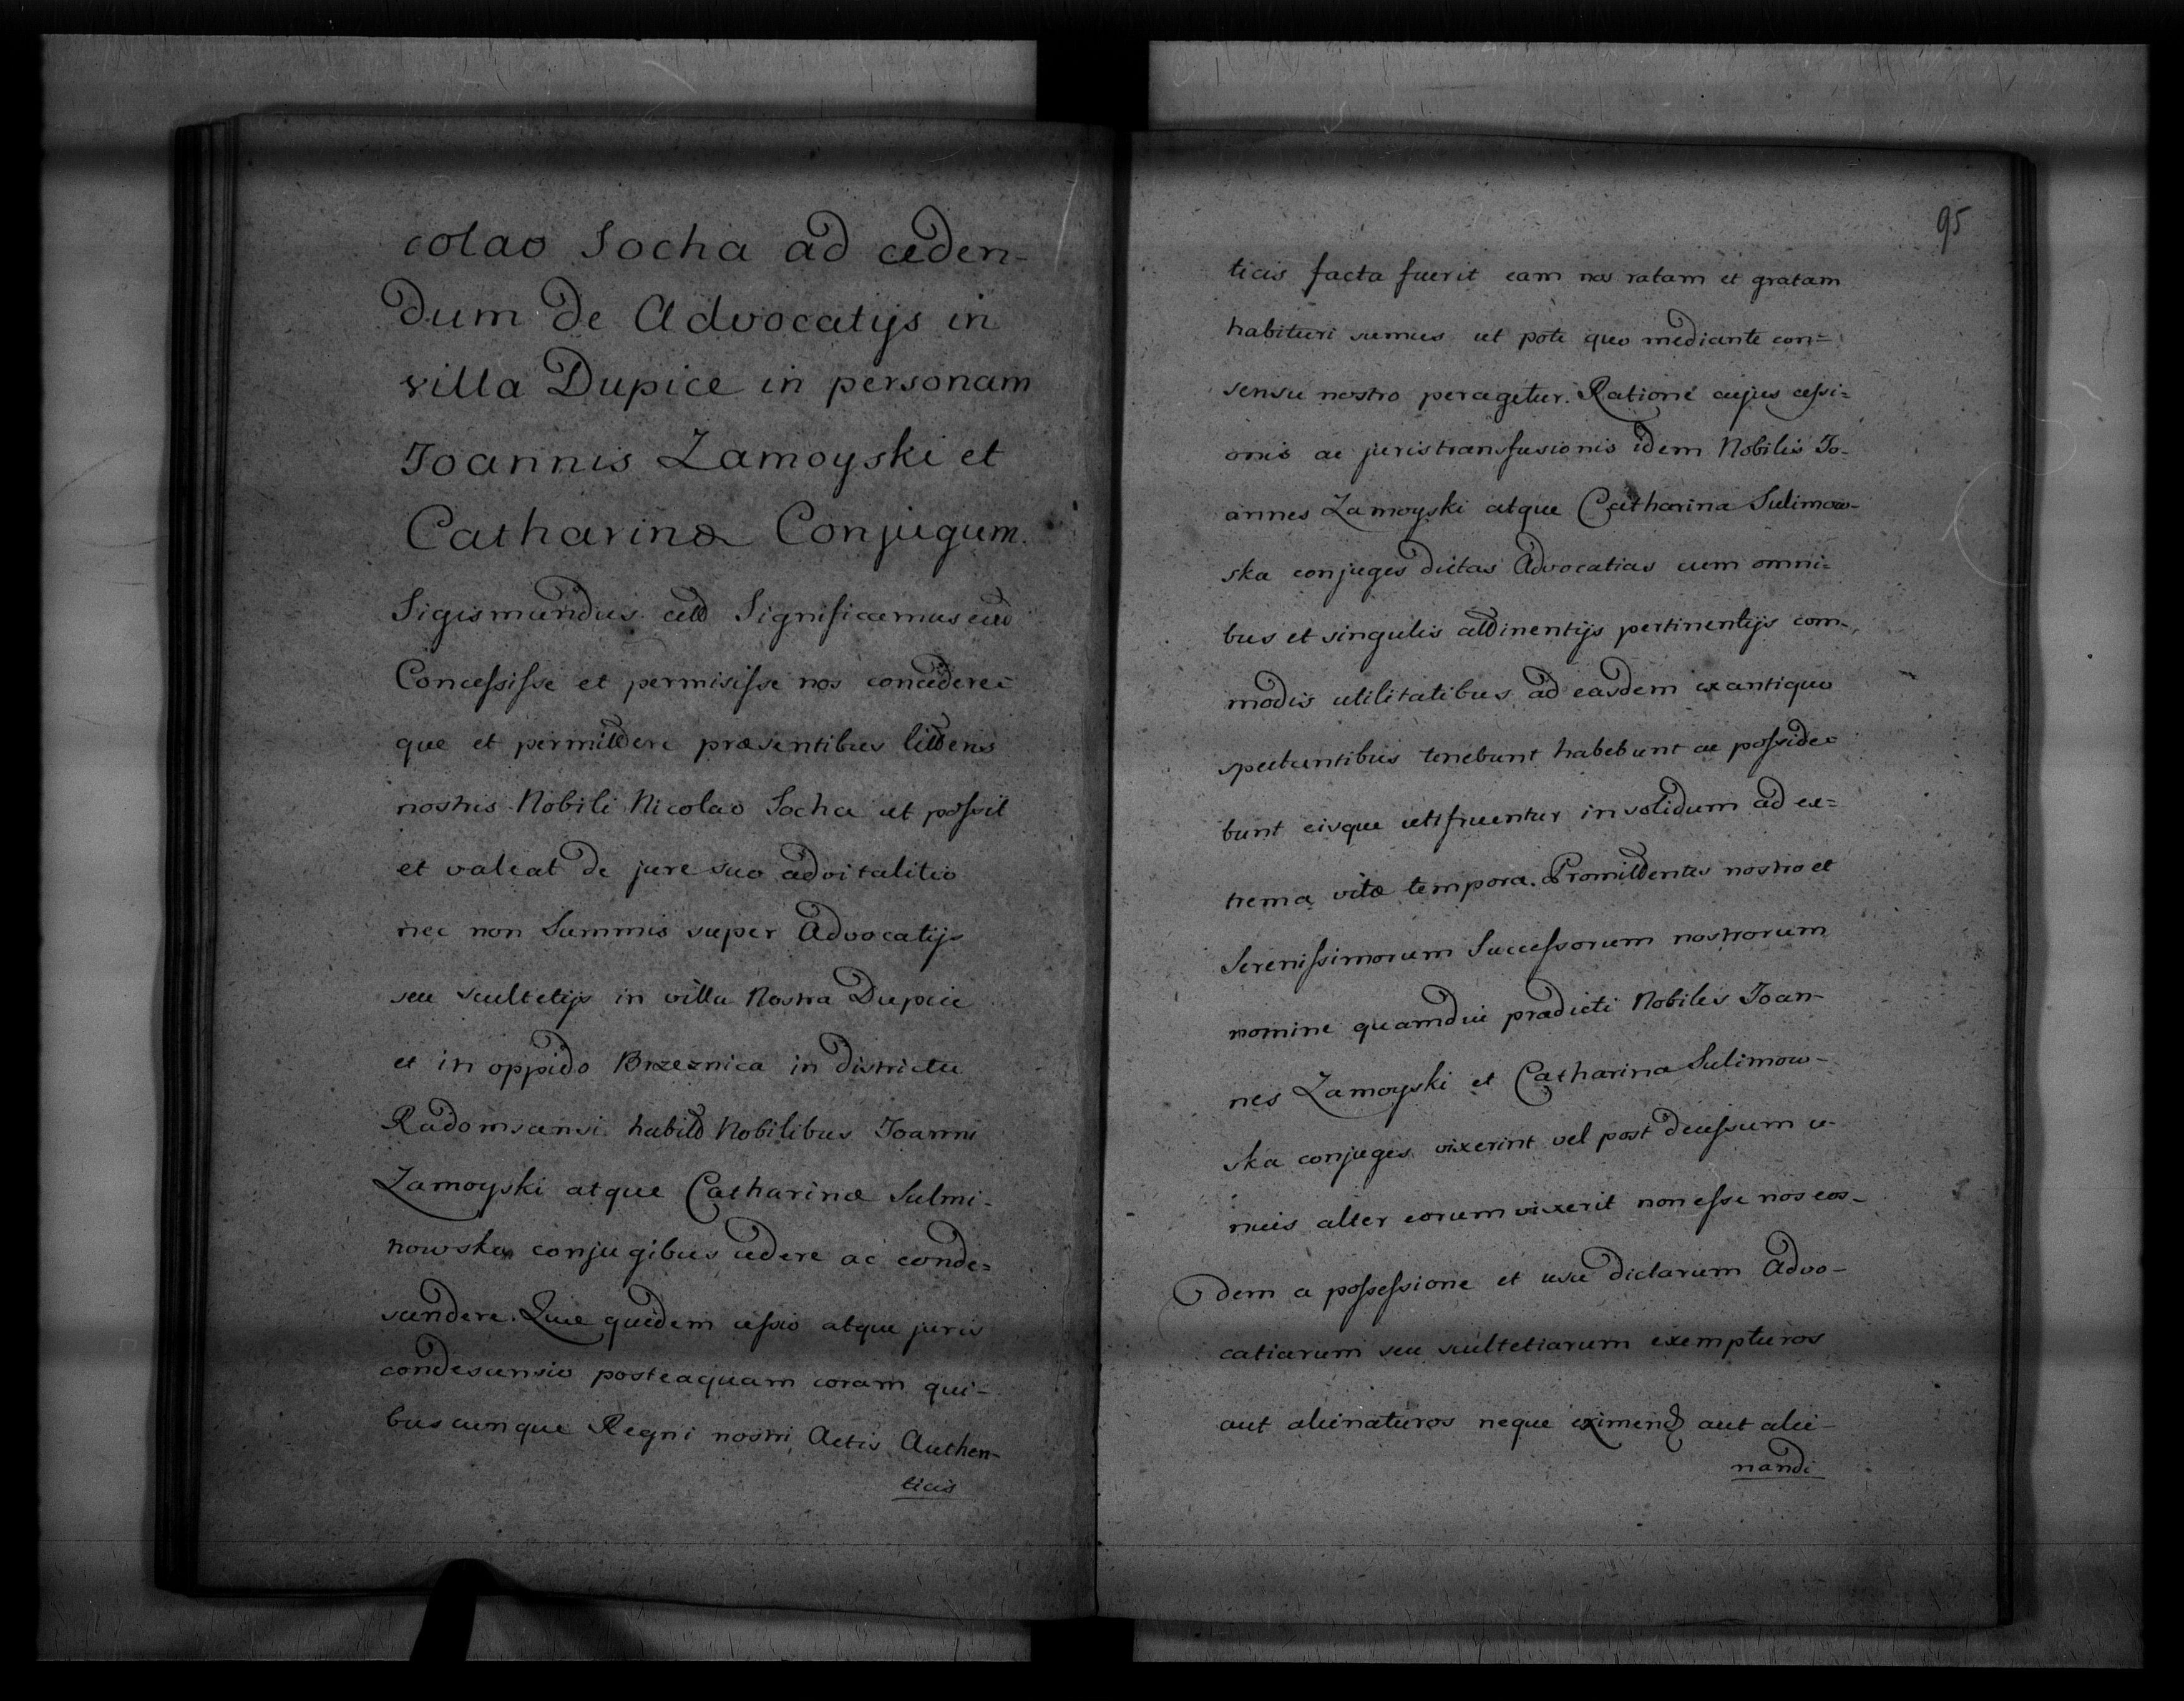 colao Socha ad ceden-
dum de Advocatijs in
villa Dupice in personam
Joannis Zamoyski et
Catharinæ Conjugum.
Sigismundus etc Significamus etc
Concessisse et permisisse nos concedere=
que et permittere præsentibus litteris
nostris Nobili Nicolao Socha ut possit
et valeat de jure suo advitalitio
nec non Summis super Advocatijs
seu scultetijs in villa Nostra Dupice
et in oppido Brzeznica in districtu
Radomscensi habitis Nobilibus Joanni
Zamoyski atque Catharinæ Sulmi-
nowska conjugibus cedere ac conde=
scendere. Quæ quidem cessio atque juris
condescensio posteaquam coram qui-
buscunque Regni nostri Actis Authen-
ticis
95
ticis facta fuerit eam nos ratam et gratam
habituri sumus ut pote quo mediante con=
sensu nostro peragetur. Ratione cujus cessi=
onis ac juris transfusionis idem Nobilis Jo-
annes Zamoyski atque Catharina Sulimow-
ska conjuges dictas Advocatias cum omni=
bus et singulis attinentijs pertinentijs com-
modis utilitatibus ad easdem ex antiquo
spectantibus tenebunt habebunt ac posside=
bunt eisque utifruentur in solidum ad ex=
trema vitæ tempora. Promittentes nostro et
Serenissimorum Successorum nostrorum
nomine quamdiu prædicti Nobiles Joan-
nes Zamoyski et Catharina Sulimow-
ska conjuges vixerint vel post decessum u-
nius alter eorum vixerit non esse nos eos-
dem a possessione et usu dictarum Advo-
catiarum seu scultetiarum exempturos
aut alienaturos neque eximendi aut alie-
nandi